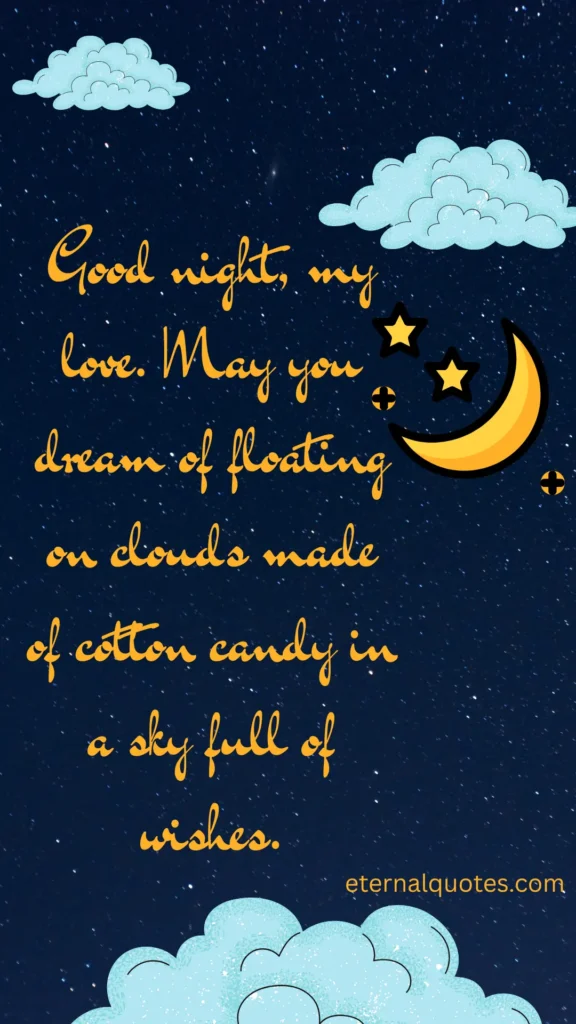 Good night, my
love. May you
dream of floating
on clouds made
of cotton candy in
a sky full of
wishes.
eternalquotes.com